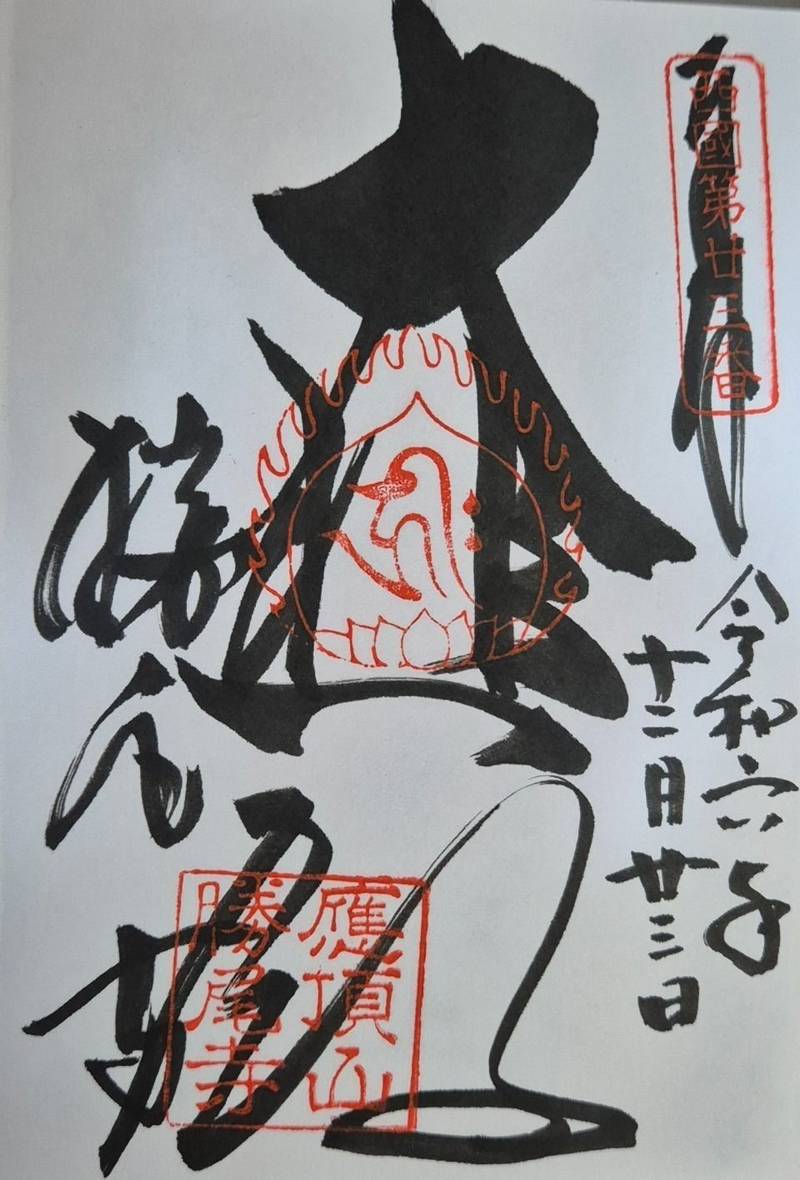 奉拝
西國第廿三番
令和六年
十二月廿三日
大悲
勝尾寺
應頂山
勝尾寺